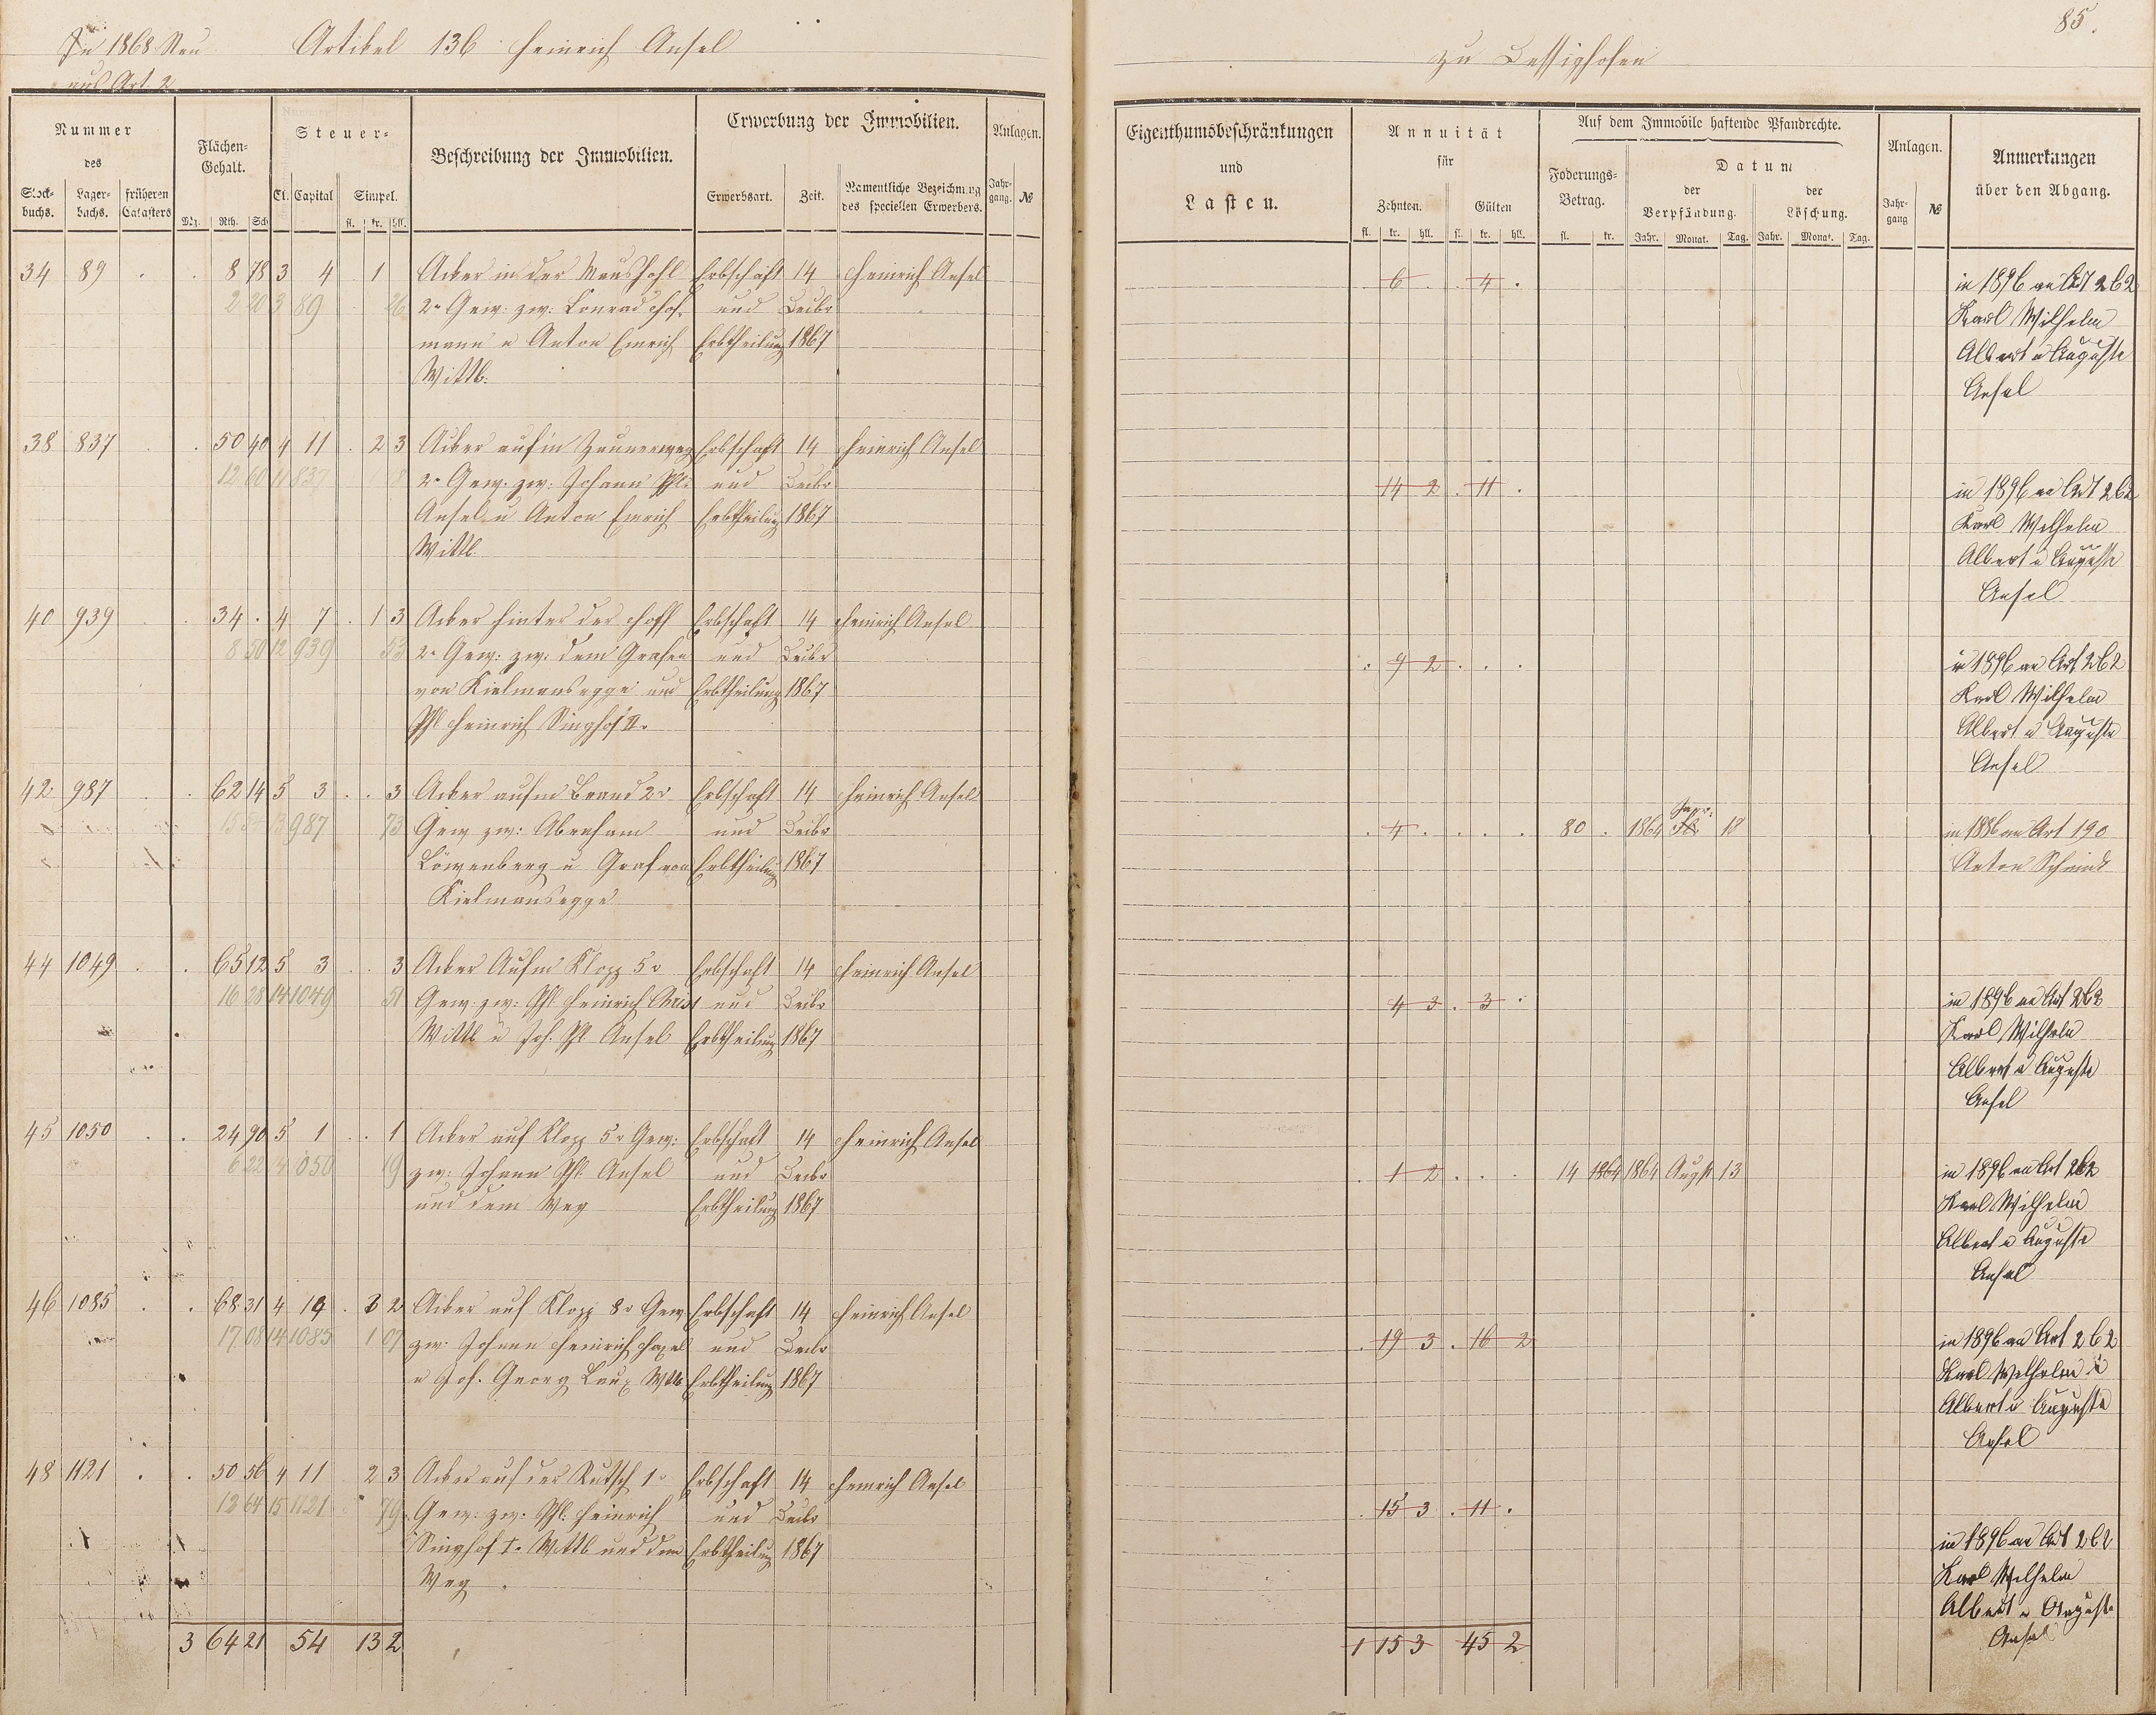 In 1868 Neu Artikel 136 Heinrich Ansel
aus Art. 2
zu Dessighofen
85.
Nummer des
Stockbuchs. Lagerbuchs. früheren Catasters
Flächen-Gehalt.
Mg. Rth. Sch
Steuer-
Cl. Capital Simpel.
fl. kr. hll.
Beschreibung der Immobilien.
Erwerbung der Immobilien.
Erwerbsart. Zeit. Namentliche Bezeichnung des speciellen Erwerbers.
Anlagen.
Jahrgang. №
Eigenthumsbeschränkungen und Lasten.
Annuität für
Zehnten. Gülten
fl. kr. hll. fl. kr. hll.
Auf dem Immobile haftende Pfandrechte.
Foderungs-Betrag.
fl. kr.
Datum
der Verpfändung. der Löschung.
Jahr. Monat. Tag. Jahr. Monat. Tag.
Anlagen.
Jahrgang №
Anmerkungen über den Abgang.
34 89 . . 8 78 3 4 . 1 Acker in der Maushohl Erbschaft 14 Heinrich Ansel
2 20 3 89 26 2r Gew: zw: Conrad Hof- und Decbr
mann u Anton Emrich Erbtheilung 1867
Wittb.
6 . . 4 .
in 1896 an Art 262
Karl Wilhelm
Albert u Auguste
Ansel
38 837 . . 50 40 4 11 . 2 3 Acker auf'm Zaunerweg Erbschaft 14 Heinrich Ansel
12 60 11 837 1 8 2r Gew. zw: Johann Phl. und Decbr
Ansel u Anton Emrich Erbtheilung 1867
Wittb.
14 2 . 11 .
in 1896 an Art 262
Karl Wilhelm
Albert u Auguste
Ansel
40 939 . . 34 . 4 7 . 1 3 Acker hinter der Hoff Erbschaft 14 Heinrich Ansel
8 50 12 939 53 2r Gew: zw: dem Grafen und Decbr
von Kielmansegge und Erbtheilung 1867
Phl Heinrich Singhof II.
. 9 2 . . .
in 1896 an Art 262
Karl Wilhelm
Albert u Auguste
Ansel
42 987 . . 62 14 5 3 . . 3 Acker aufm Brand 2r Erbschaft 14 Heinrich Ansel
15 54 13 987 73 Gew zw: Abraham und Decbr
Löwenberg u Graf von Erbtheilung 1867
Kielmansegge
. 4 . . . . 80 . 1864 18
in 1886 an Art 190
Anton Schmidt
44 1049 . . 65 12 5 3 . . 3 Acker Aufm Klopp 5r Erbschaft 14 Heinrich Ansel
16 28 14 1049 51 Gew: zw: Phl Heinrich und Decbr
Wittb u Joh. Phl Ansel Erbtheilung 1867
4 3 . 3 .
in 1896 an Art 262
Karl Wilhelm
Albert u Auguste
Ansel
45 1050 . . 24 90 5 1 . . 1 Acker auf Klopp 5r Gew: Erbschaft 14 Heinrich Ansel
6 22 14 1050 19 zw: Johann Phl Ansel und Decbr
und dem Weg Erbtheilung 1867
. 1 2 . . . 14 1864 1864 Augst 13
in 1896 an Art 262
Karl Wilhelm
Albert u Auguste
Ansel
46 1085 . . 68 31 4 14 . 3 2 Acker auf Klopp 8r Gew Erbschaft 14 Heinrich Ansel
17 08 14 1085 1 07 zw: Johann Heinrich und Decbr
u Joh. Georg Laux Wtb Erbtheilung 1867
. 19 3 . 16 2
in 1896 an Art 262
Karl Wilhelm
Albert u Auguste
Ansel
48 1121 . . 50 56 4 11 2 3 Acker auf der Rutsch 1r Erbschaft 14 Heinrich Ansel
12 64 15 1121 79 Gew: zw: Phl. Heinrich und Decbr
Singhof I. Wittb und dem Erbtheilung 1867
Weg .
. 15 3 . 11 .
in 1896 an Art 262
Karl Wilhelm
Albert u Auguste
Ansel
3 64 21 54 13 2
1 15 3 45 2